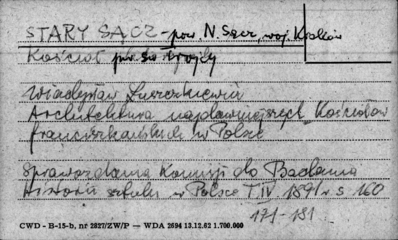 STARY SĄCZ - pow. N. Sącz, woj. Kraków
Kościół p.w. św. Trójcy
Władysław Łuszczkiewicz
Architektura najdawniejszych Kościołów
franciszkańskich w Polsce
Sprawozdania Komisji do Badania
Historii sztuki w Polsce T. IV 1891 r s 160
171-181
CWD - B-15-b, nr 2827/ZW/P — WDA 2694 13.12.62 1.700.000